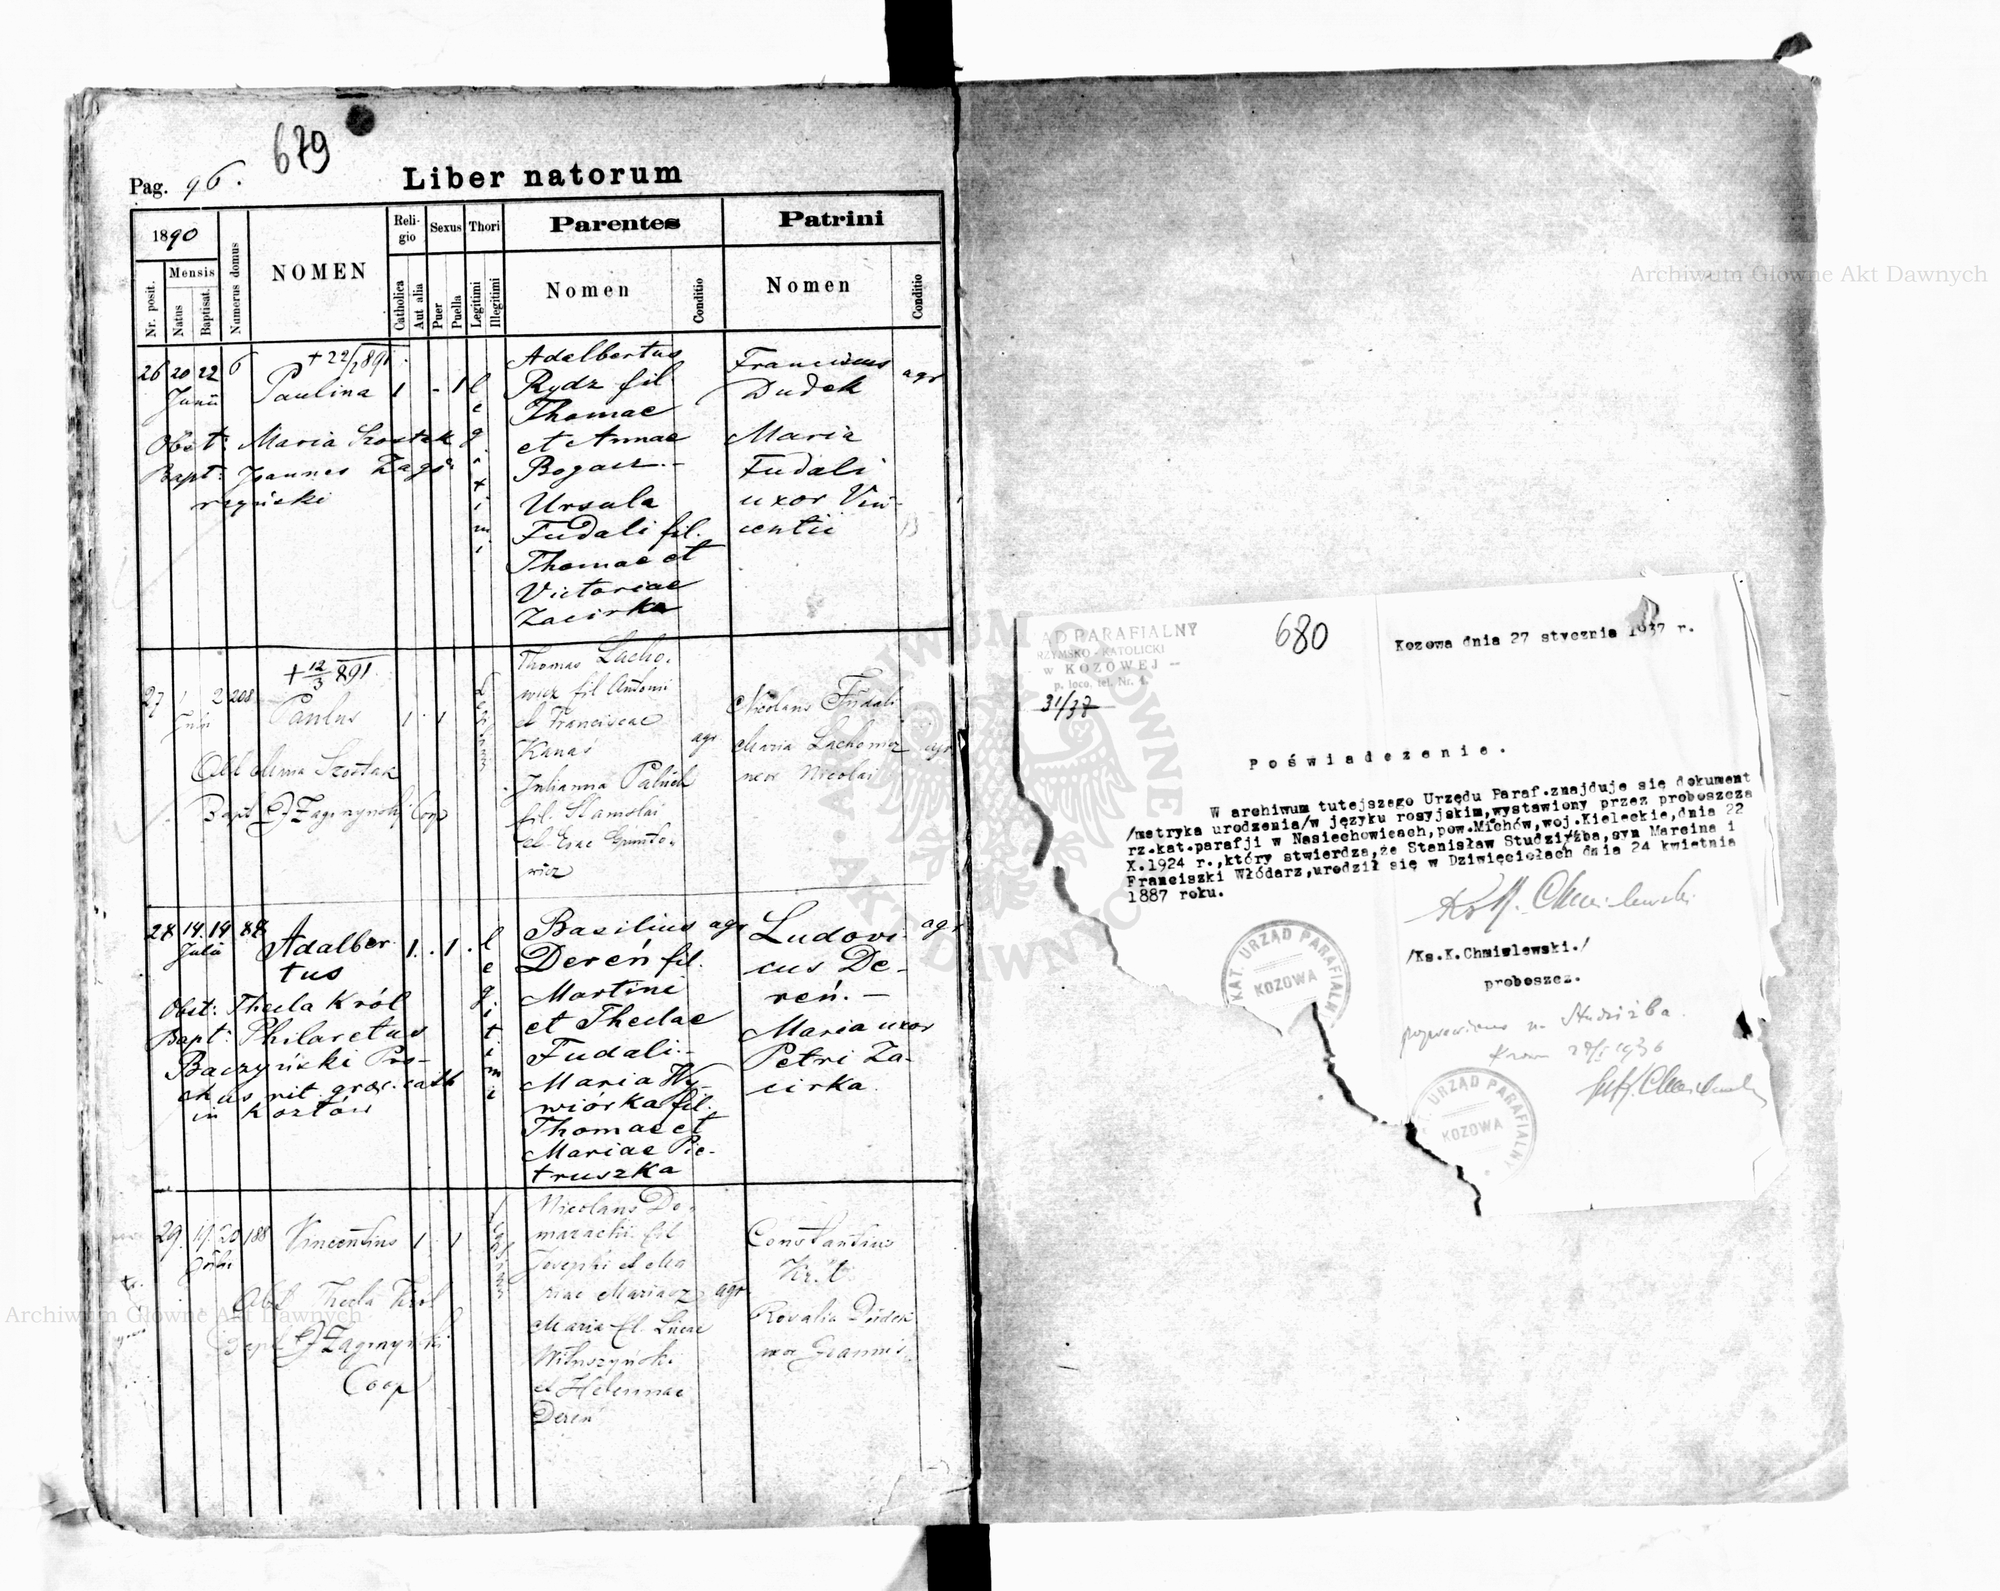 679
Pag. 96.
Liber natorum
1890
Nr. posit.
Mensis
Natus
Baptisat.
Numerus domus
NOMEN
Religio
Catholica
Aut alia
Sexus
Puer
Puella
Thori
Legitimi
Illegitimi
Parentes
Nomen
Conditio
Patrini
Nomen
Conditio
26 20 22 6
Junii
+ 22/ 891
Paulina 1 - 1
legitimi
Obst: Maria Szostak
Bapt: Joannes Zagó-
rzyński
Adalbertus
Rydz fil
Thomae
et Annae
Bogacz.-
Ursula
Fudali fil.
Thomae et
Victoriae
Zacirka
Franciscus
Dudek
agr
Maria
Fudali
uxor Vin-
centii
27 1 2 208
+ 12/3 891
Paulus 1 1
Obst Anna Szostak
Bapt J Zagrzyński Coop
Thomas Lacho-
wicz fil Antoni
et Franciscae
Kanaś
Julianna
fil. Stanislai
et Evae
wicz
agr
Nicolaus Fudali
Maria Lachowicz
uxor Nicolai
agr
28 14. 19 88
Julii
Adalber-
tus
1. . 1 .
legitimi
Obst: Thecla Król
Bapt: Philaretus
Baczyński Pro-
chus rit. graec. cath
in Kozłów
Basilius agr
Dereń fil.
Martini
et Theclae
Fudali.-
Maria Wy-
wiórka fil.
Thomae et
Mariae Pie-
truszka
Ludovi- agr
cus De-
reń.-
Maria uxor
Petri Za-
cirka.
29. 19. 20 188
Vincentius 1 1
Obst Thecla Król
Bapt J Zagrzyński
Coop
Nicolaus Do-
maracki fil
Josephi et Ma
riae
Maria fil. Lucae
et Helennae
Dereń
agr
Constantius
Król
Rosalia Dudek
uxor Joannis
680
AD PARAFIALNY
RZYMSKO-KATOLICKI
w KOZOWEJ
p. loco, tel. Nr. 4.
31/37
Kozowa dnia 27 stycznia 1937 r.
Poświadczenie.
W archiwum tutejszego Urzędu Paraf.znajduje się dokument
/metryka urodzenia/w języku rosyjskim,wystawiony przez proboszcza
rz.kat.parafji w Nasiechowicach,pow.Michów,woj.Kieleckie,dnia 22
X.1924 r.,który stwierdza,że Stanisław Studziźba,syn Marcina i
Franciszki Włódarz,urodził się w Dziwięciołach dnia 24 kwietnia
1887 roku.
Ks K. Chmielewski
/Ks.K.Chmielewski./
proboszcz.
KAT. URZĄD PARAFIALNY
KOZOWA
poprawiono na Studziżba.
URZĄD PARAFIALNY
KOZOWA
Archiwum Główne Akt Dawnych
Archiwum Główne Akt Dawnych
ARCHIWUM GŁÓWNE AKT DAWNYCH